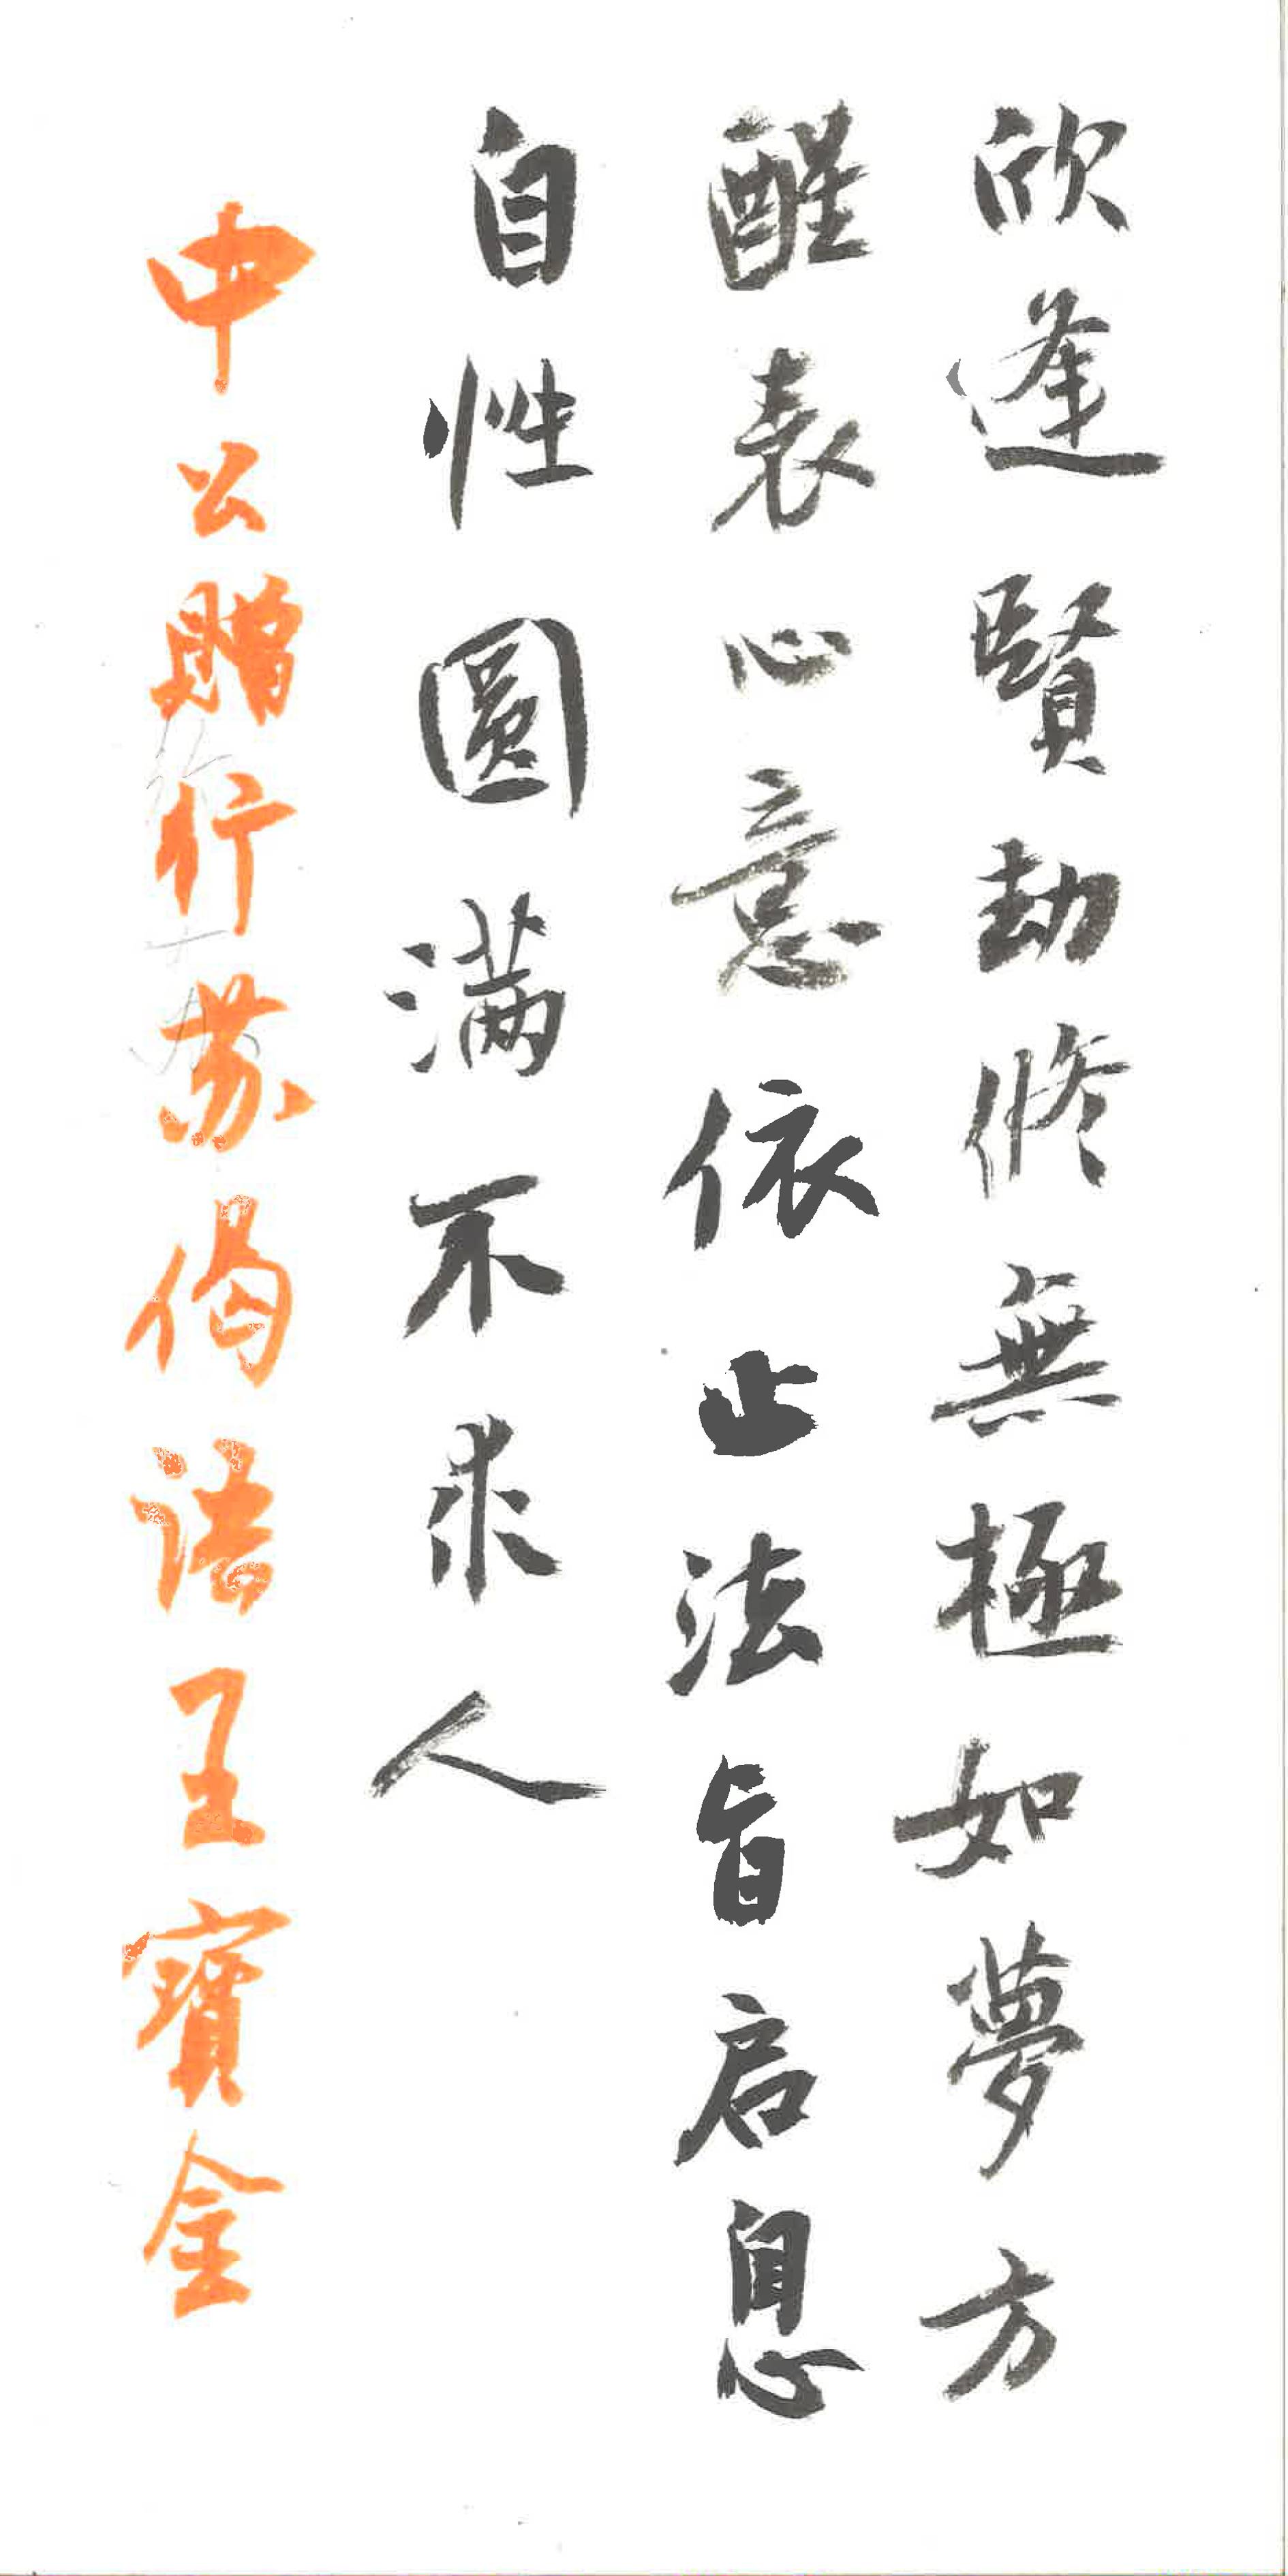 欣逢賢劫修無極如夢方
醒表心意依止法旨启息
自性圓满不求人
中公贈行苏偈法王寶金